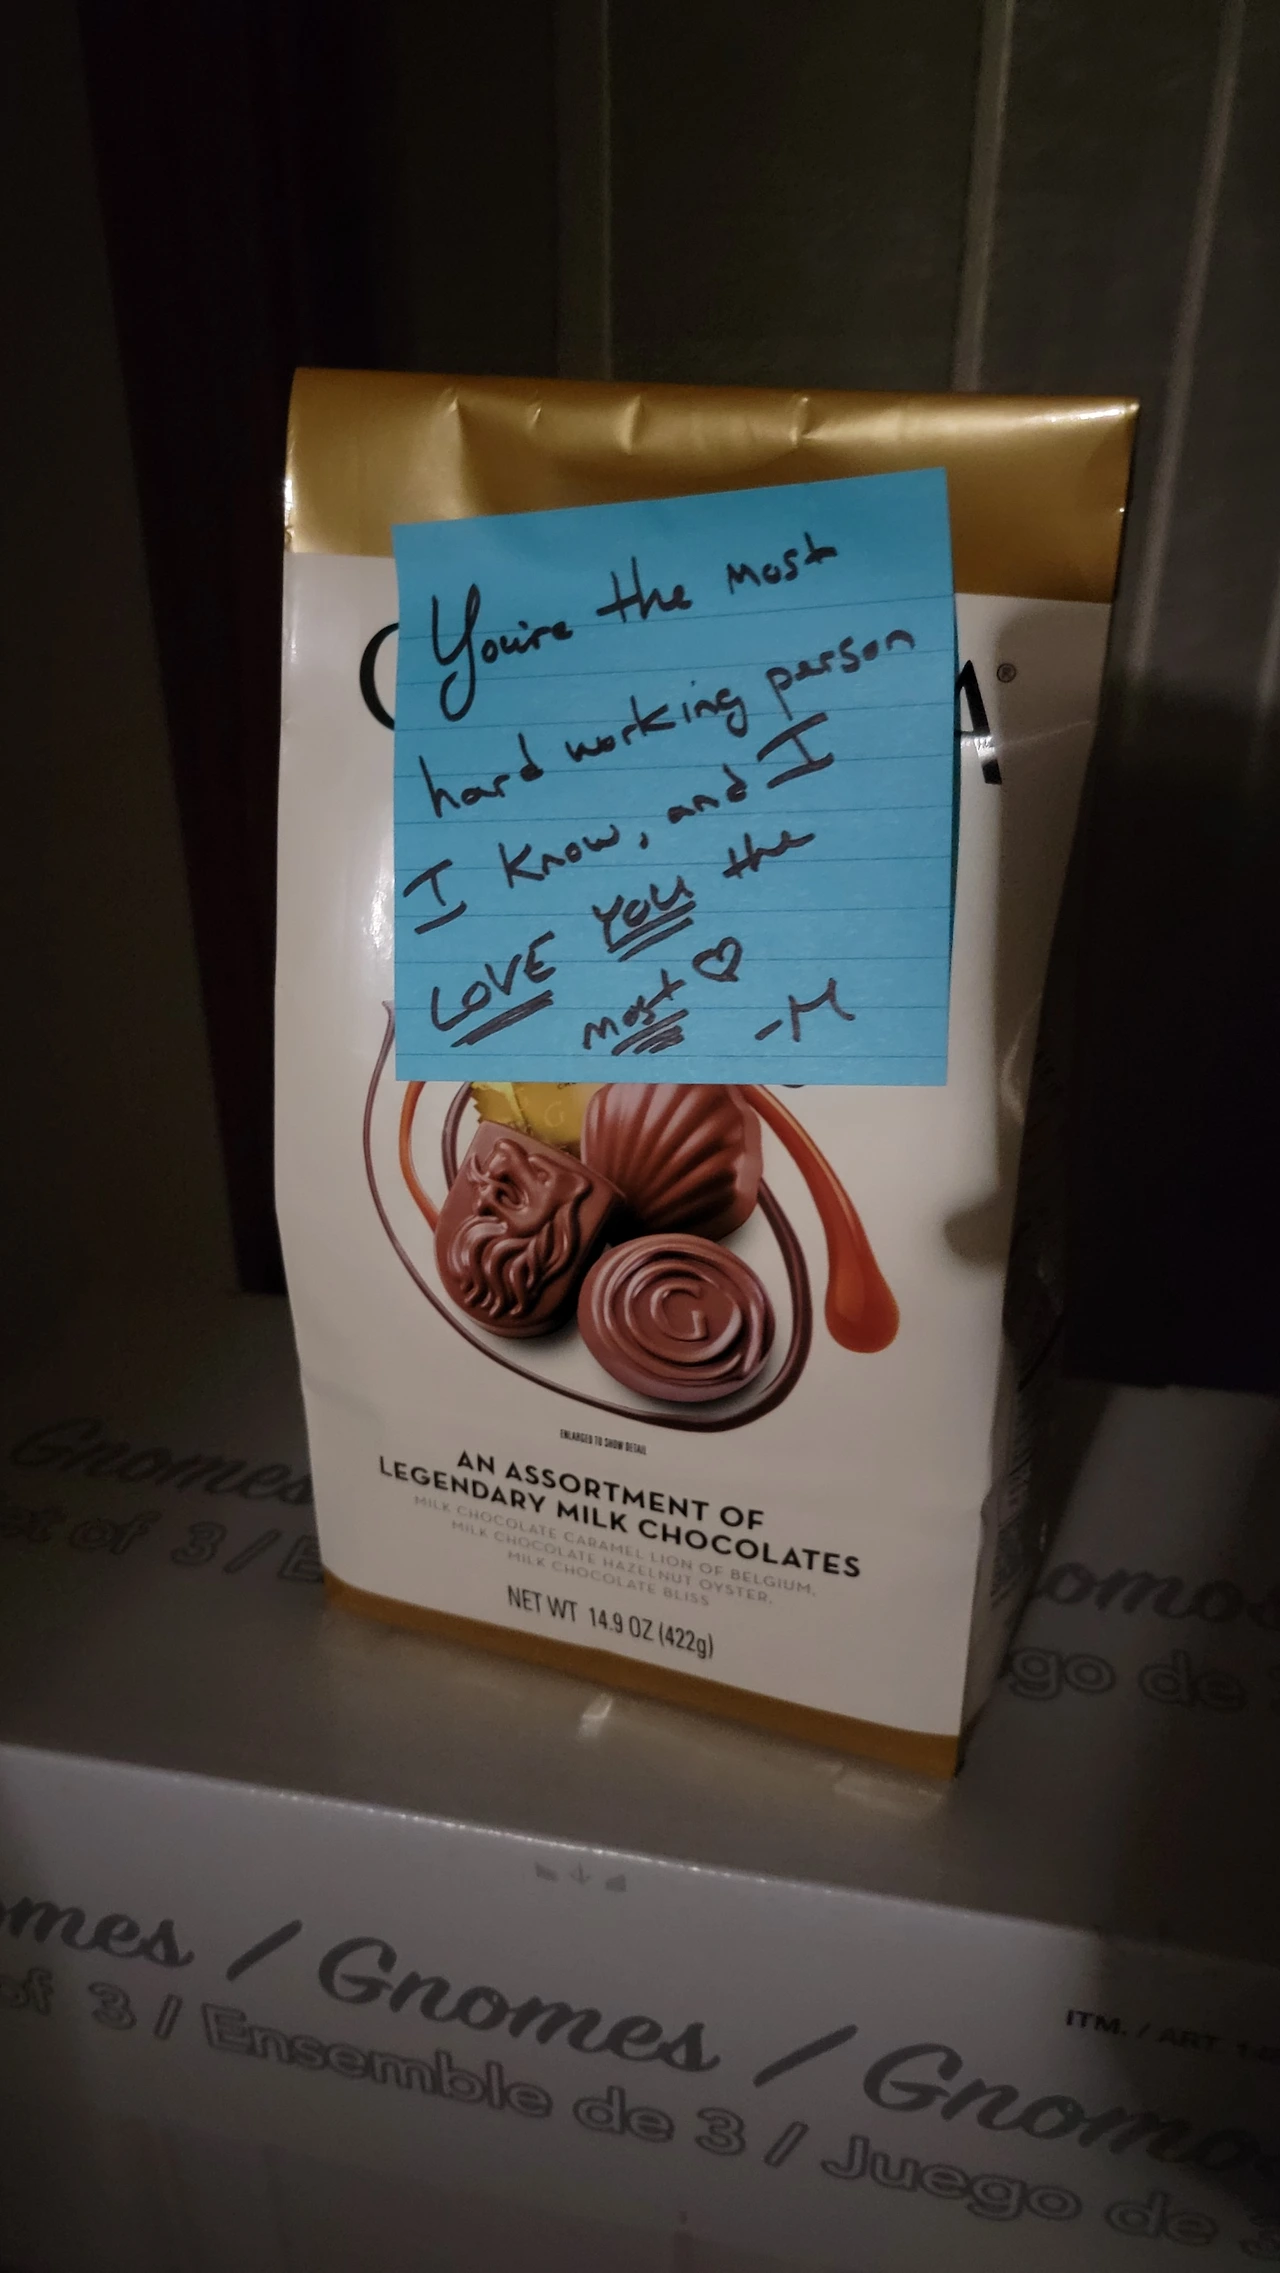 You're the most
hard working person
I know, and I
LOVE YOU the
most ♡
-M
®
ENLARGED TO SHOW DETAIL
AN ASSORTMENT OF
LEGENDARY MILK CHOCOLATES
MILK CHOCOLATE CARAMEL LION OF BELGIUM,
MILK CHOCOLATE HAZELNUT OYSTER,
MILK CHOCOLATE BLISS
NET WT 14.9 OZ (422g)
Gnomes
of 3 /
go de
mes / Gnomes / Gnomo
of 3 / Ensemble de 3 / Juego de 3
ITM. / ART.